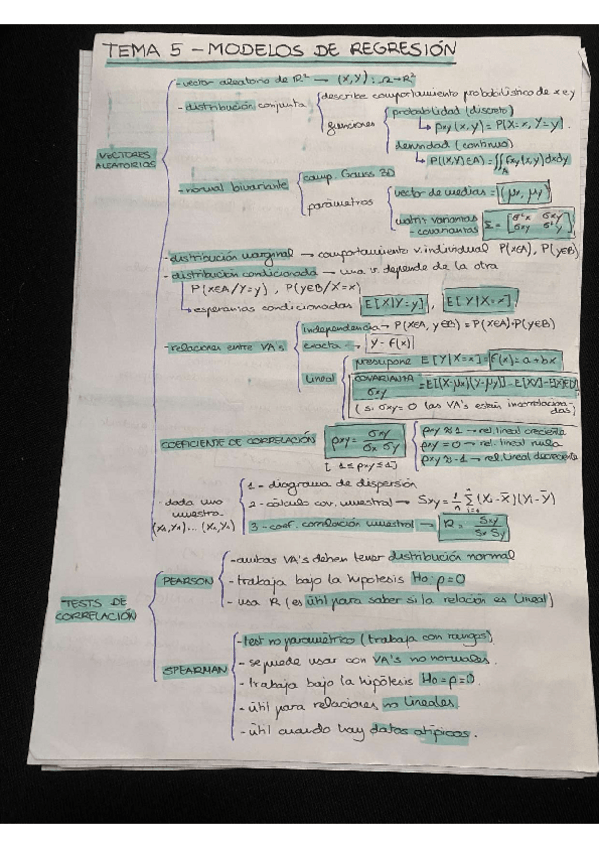 TEMA 5 - MODELOS DE REGRESIÓN
VECTORES ALEATORIOS
- vector aleatorio de R² → (X,Y): Ω→R²
- distribución conjunta
describe comportamiento probabilístico de x e y
funciones
probabilidad (discreto)
↳ pxy (x,y) = P(X=x, Y=y).
densidad (continuo)
↳ P((X,Y)∈A) = ∬_A fxy(x,y)dxdy
- normal bivariante
camp. Gauss 3D
parámetros
vector de medias = (μx, μy)
matriz varianzas - covarianzas Σ = [σ²x σxy
σxy σ²y]
- distribución marginal → comportamiento v. individual P(X∈A), P(Y∈B)
- distribución condicionada → una v. depende de la otra
P(X∈A/Y=y), P(Y∈B/X=x)
↳ esperanzas condicionadas E[X|Y=y], E[Y|X=x]
- relaciones entre VA's
independencia → P(X∈A, Y∈B) = P(X∈A)·P(Y∈B)
exacta → Y = f(x)
Lineal
presupone E[Y|X=x] = f(x) = a+bx
COVARIANZA σxy = E[(X-μx)(Y-μy)] = E[XY]-E[X]E[Y]
(si σxy = 0 las VA's están incorrelacionadas)
COEFICIENTE DE CORRELACIÓN ρxy = σxy / σx σy
[-1≤ρxy≤1]
ρxy ≈ 1 → rel. lineal creciente
ρxy = 0 → rel. lineal nula
ρxy ≈ -1 → rel. lineal decreciente
· dada una muestra (x₁,y₁)... (xₙ,yₙ)
1 - diagrama de dispersión
2 - cálculo cov. muestral → Sxy = 1/n Σ (xi - x̄)(yi - ȳ)
3 - coef. correlación muestral → R = Sxy / Sx Sy
TESTS DE CORRELACIÓN
PEARSON
- ambas VA's deben tener distribución normal
- trabaja bajo la hipótesis H₀: ρ=0
- usa R (es útil para saber si la relación es lineal)
SPEARMAN
- test no paramétrico (trabaja con rangos)
- se puede usar con VA's no normales.
- trabaja bajo la hipótesis H₀ = ρ = 0.
- útil para relaciones no lineales
- útil cuando hay datos atípicos.